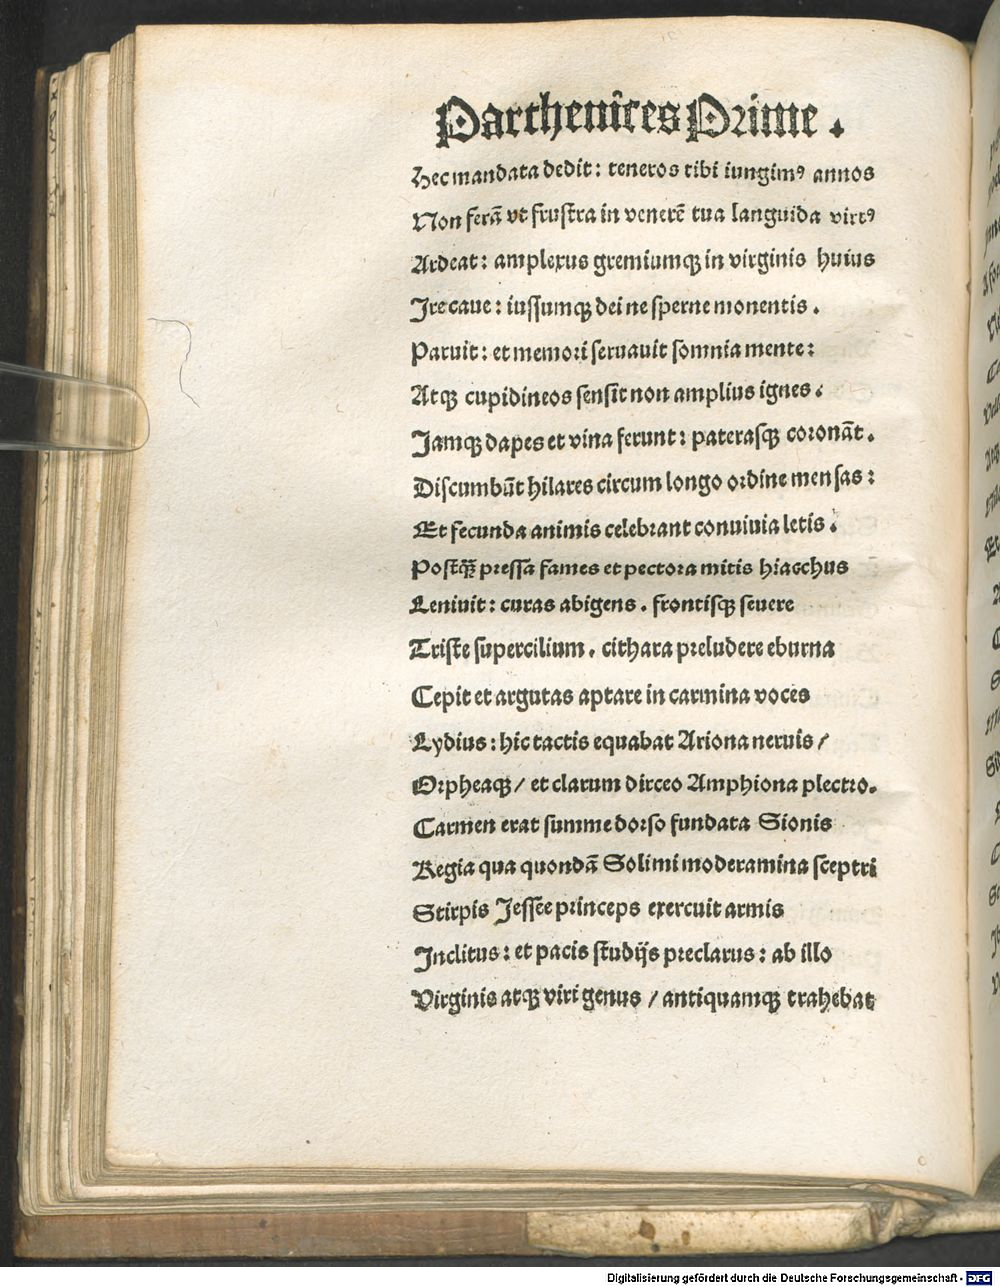 Parthenices Prime.
Hec mandata dedit: teneros tibi iungimꝰ annos
Non ferã vt frustra in venerẽ tua languida virtꝰ
Ardeat: amplexus gremiumqꝫ in virginis huius
Ire caue: iussumqꝫ dei ne sperne monentis.
Paruit: et memori seruauit somnia mente:
Atqꝫ cupidineos sensit non amplius ignes.
Jamqꝫ dapes et vina ferunt: paterasqꝫ coronãt.
Discumbũt hilares circum longo ordine mensas:
Et fecunda animis celebrant conuiuia letis.
Postqꝫ̃ pressa fames et pectora mitis hiacchus
Leniuit: curas abigens. frontisqꝫ seuere
Triste supercilium. cithara preludere eburna
Cepit et argutas aptare in carmina voces
Lydius: hic tactis equabat Ariona neruis/
Orpheaqꝫ/ et clarum dirceo Amphiona plectro.
Carmen erat summe dorso fundata Sionis
Regia qua quondã Solimi moderamina sceptri
Stirpis Jessee princeps exercuit armis
Inclitus: et pacis studijs preclarus: ab illo
Virginis atqꝫ viri genus/ antiquamqꝫ trahebat
Digitalisierung gefördert durch die Deutsche Forschungsgemeinschaft - DFG